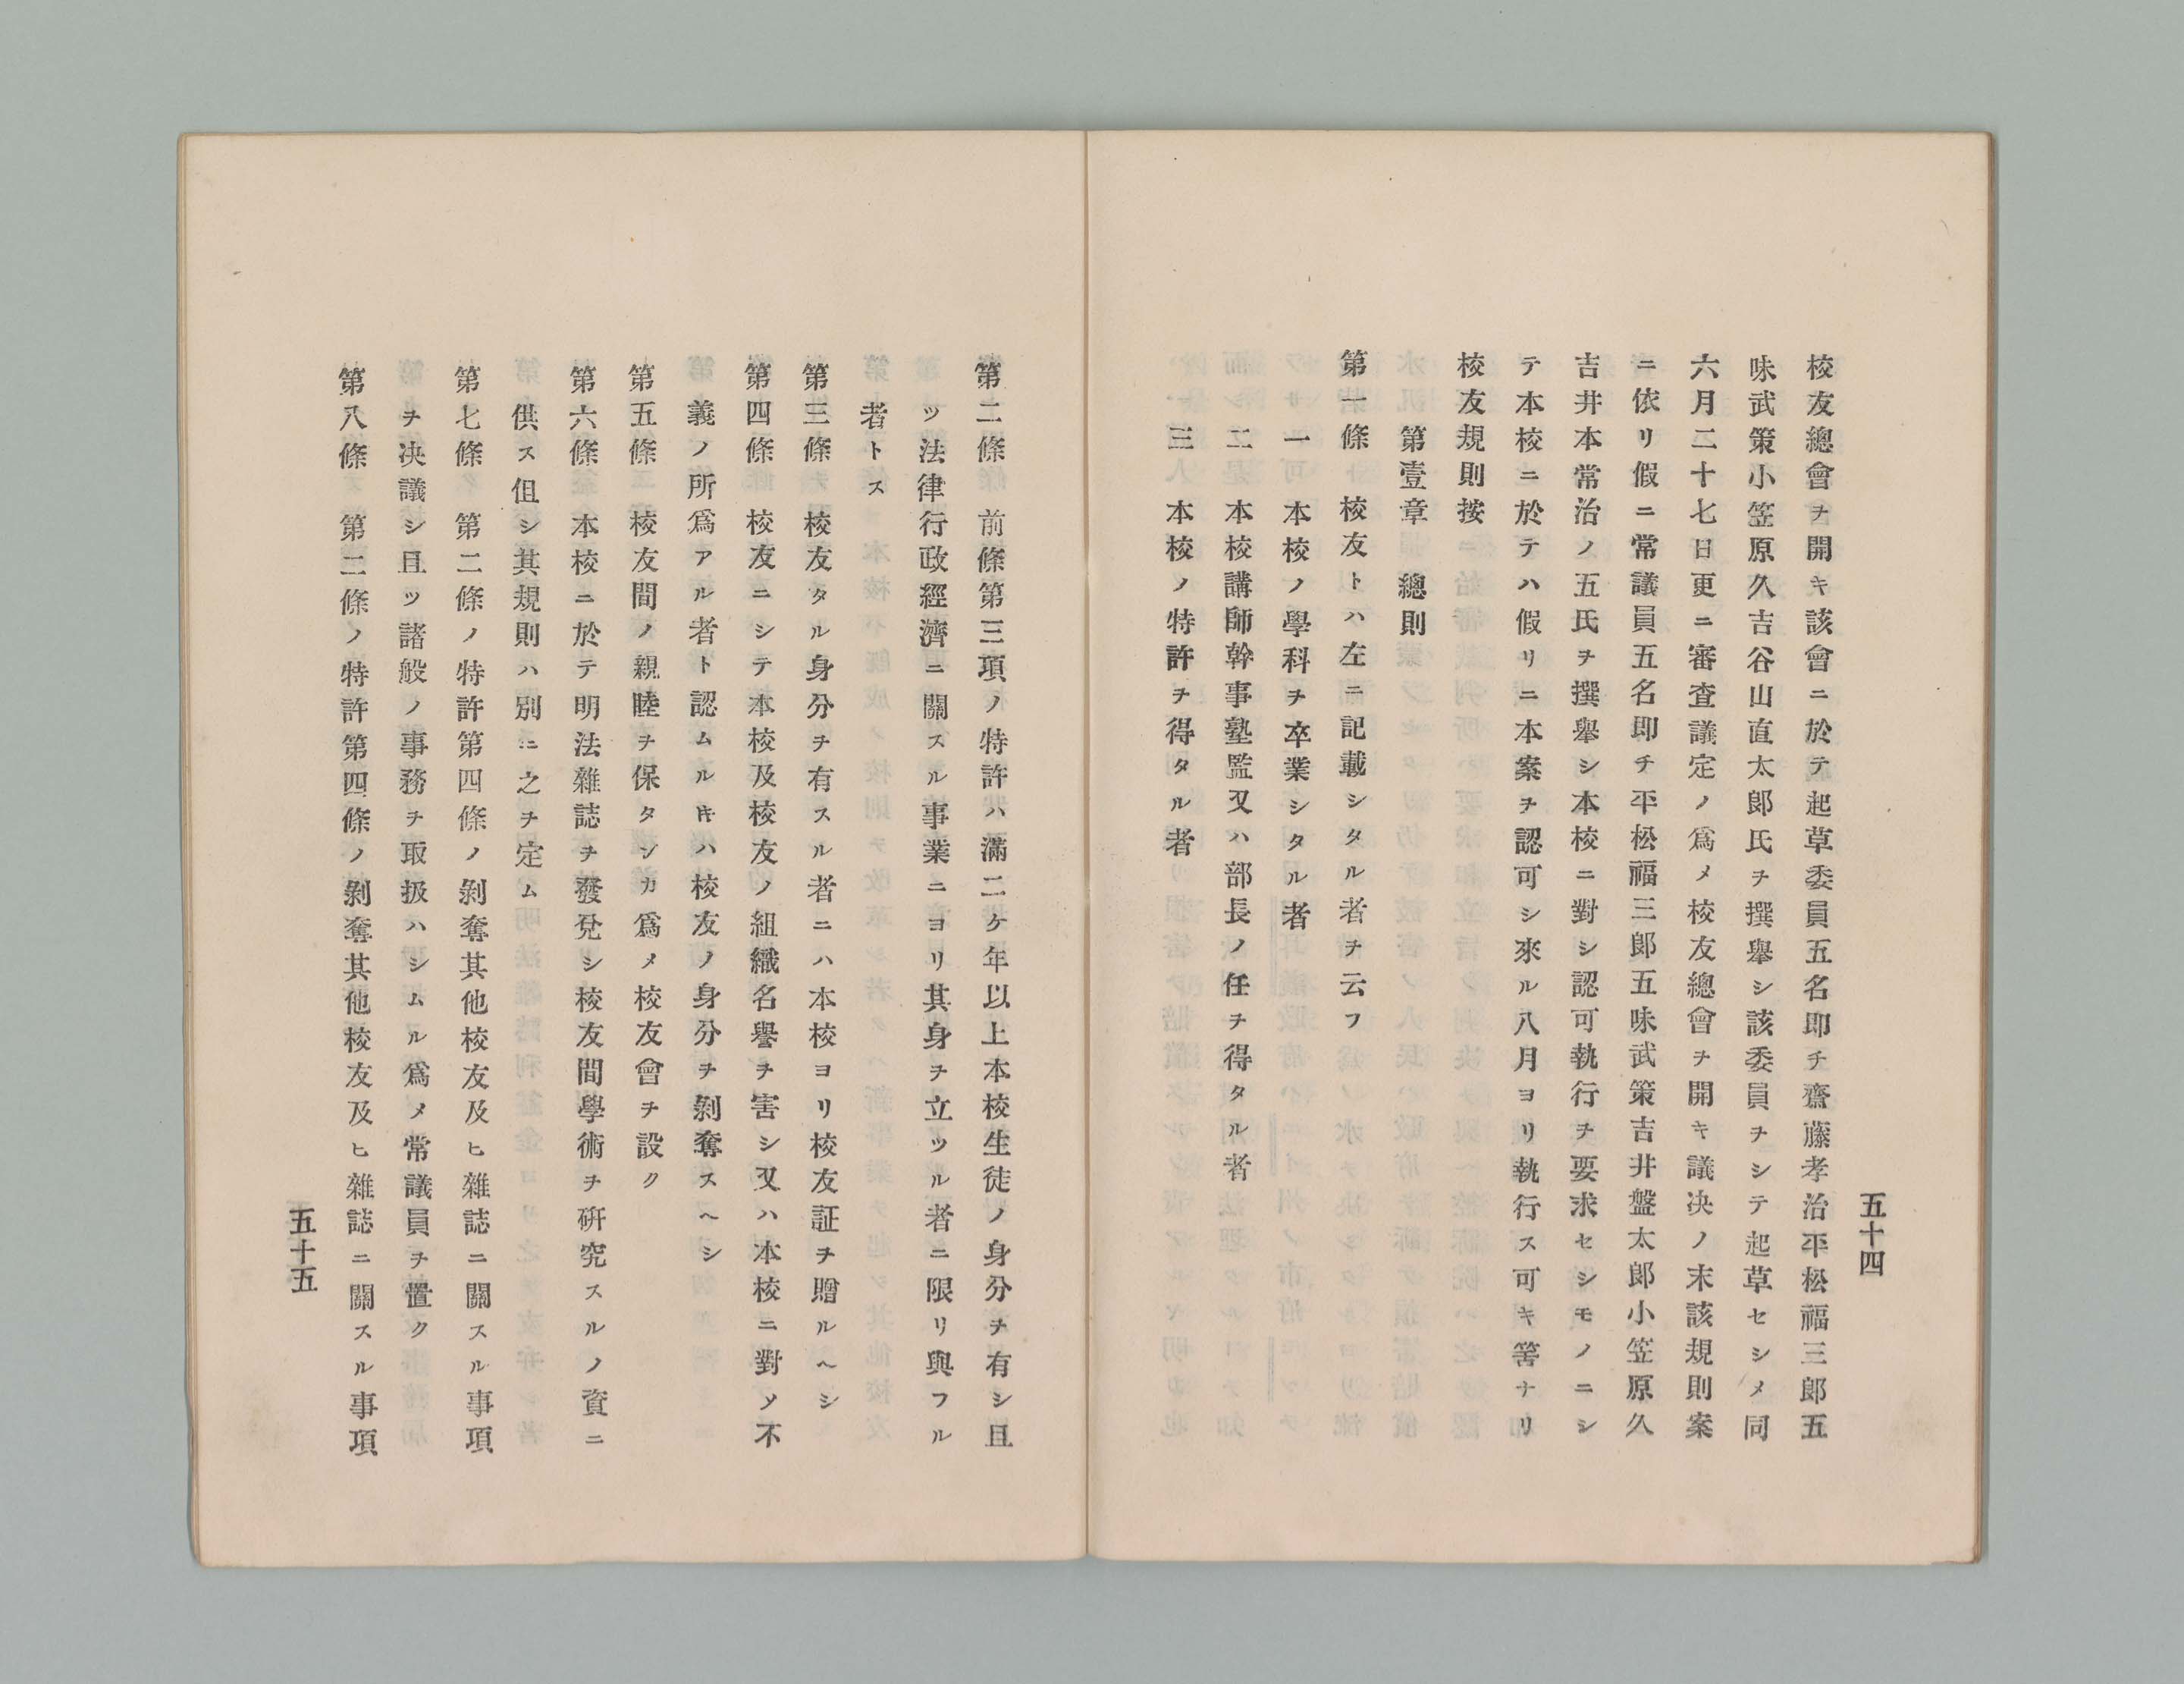 五十四
校友總會ヲ開キ該會ニ於テ起草委員五名即チ齋藤孝治平松福三郎五
味武策小笠原久吉谷山直太郎氏ヲ撰舉シ該委員ヲシテ起草セシメ同
六月二十七日更ニ審査議定ノ爲メ校友總會ヲ開キ議决ノ末該規則案
ニ依リ假ニ常議員五名即チ平松福三郎五味武策吉井盤太郎小笠原久
吉井本常治ノ五氏ヲ撰舉シ本校ニ對シ認可執行ヲ要求セシモノニシ
テ本校ニ於テハ假リニ本案ヲ認可シ來ル八月ヨリ執行ス可キ筈ナリ
校友規則按
第壹章 總則
第一條 校友トハ左ニ記載シタル者ヲ云フ
一 本校ノ學科ヲ卒業シタル者
二 本校講師幹事塾監又ハ部長ノ任ヲ得タル者
三 本校ノ特許ヲ得タル者
第二條 前條第三項ノ特許ハ滿二ケ年以上本校生徒ノ身分ヲ有シ且
ツ法律行政經濟ニ關スル事業ニヨリ其身ヲ立ツル者ニ限リ與フル
者トス
第三條 校友タル身分ヲ有スル者ニハ本校ヨリ校友証ヲ贈ルヘシ
第四條 校友ニシテ本校及校友ノ組織名譽ヲ害シ又ハ本校ニ對ソ不
義ノ所爲アル者ト認ムルㇳキハ校友ノ身分ヲ剝奪スヘシ
第五條 校友間ノ親睦ヲ保タンカ爲メ校友會ヲ設ク
第六條 本校ニ於テ明法雜誌ヲ發兌シ校友間學術ヲ研究スルノ資ニ
供ス伹シ其規則ハ別ニ之ヲ定ム
第七條 第二條ノ特許第四條ノ剝奪其他校友及ヒ雜誌ニ關スル事項
ヲ决議シ且ツ諸般ノ事務ヲ取扱ハシムル爲メ常議員ヲ置ク
第八條 第二條ノ特許第四條ノ剝奪其他校友及ヒ雜誌ニ關スル事項
五十五